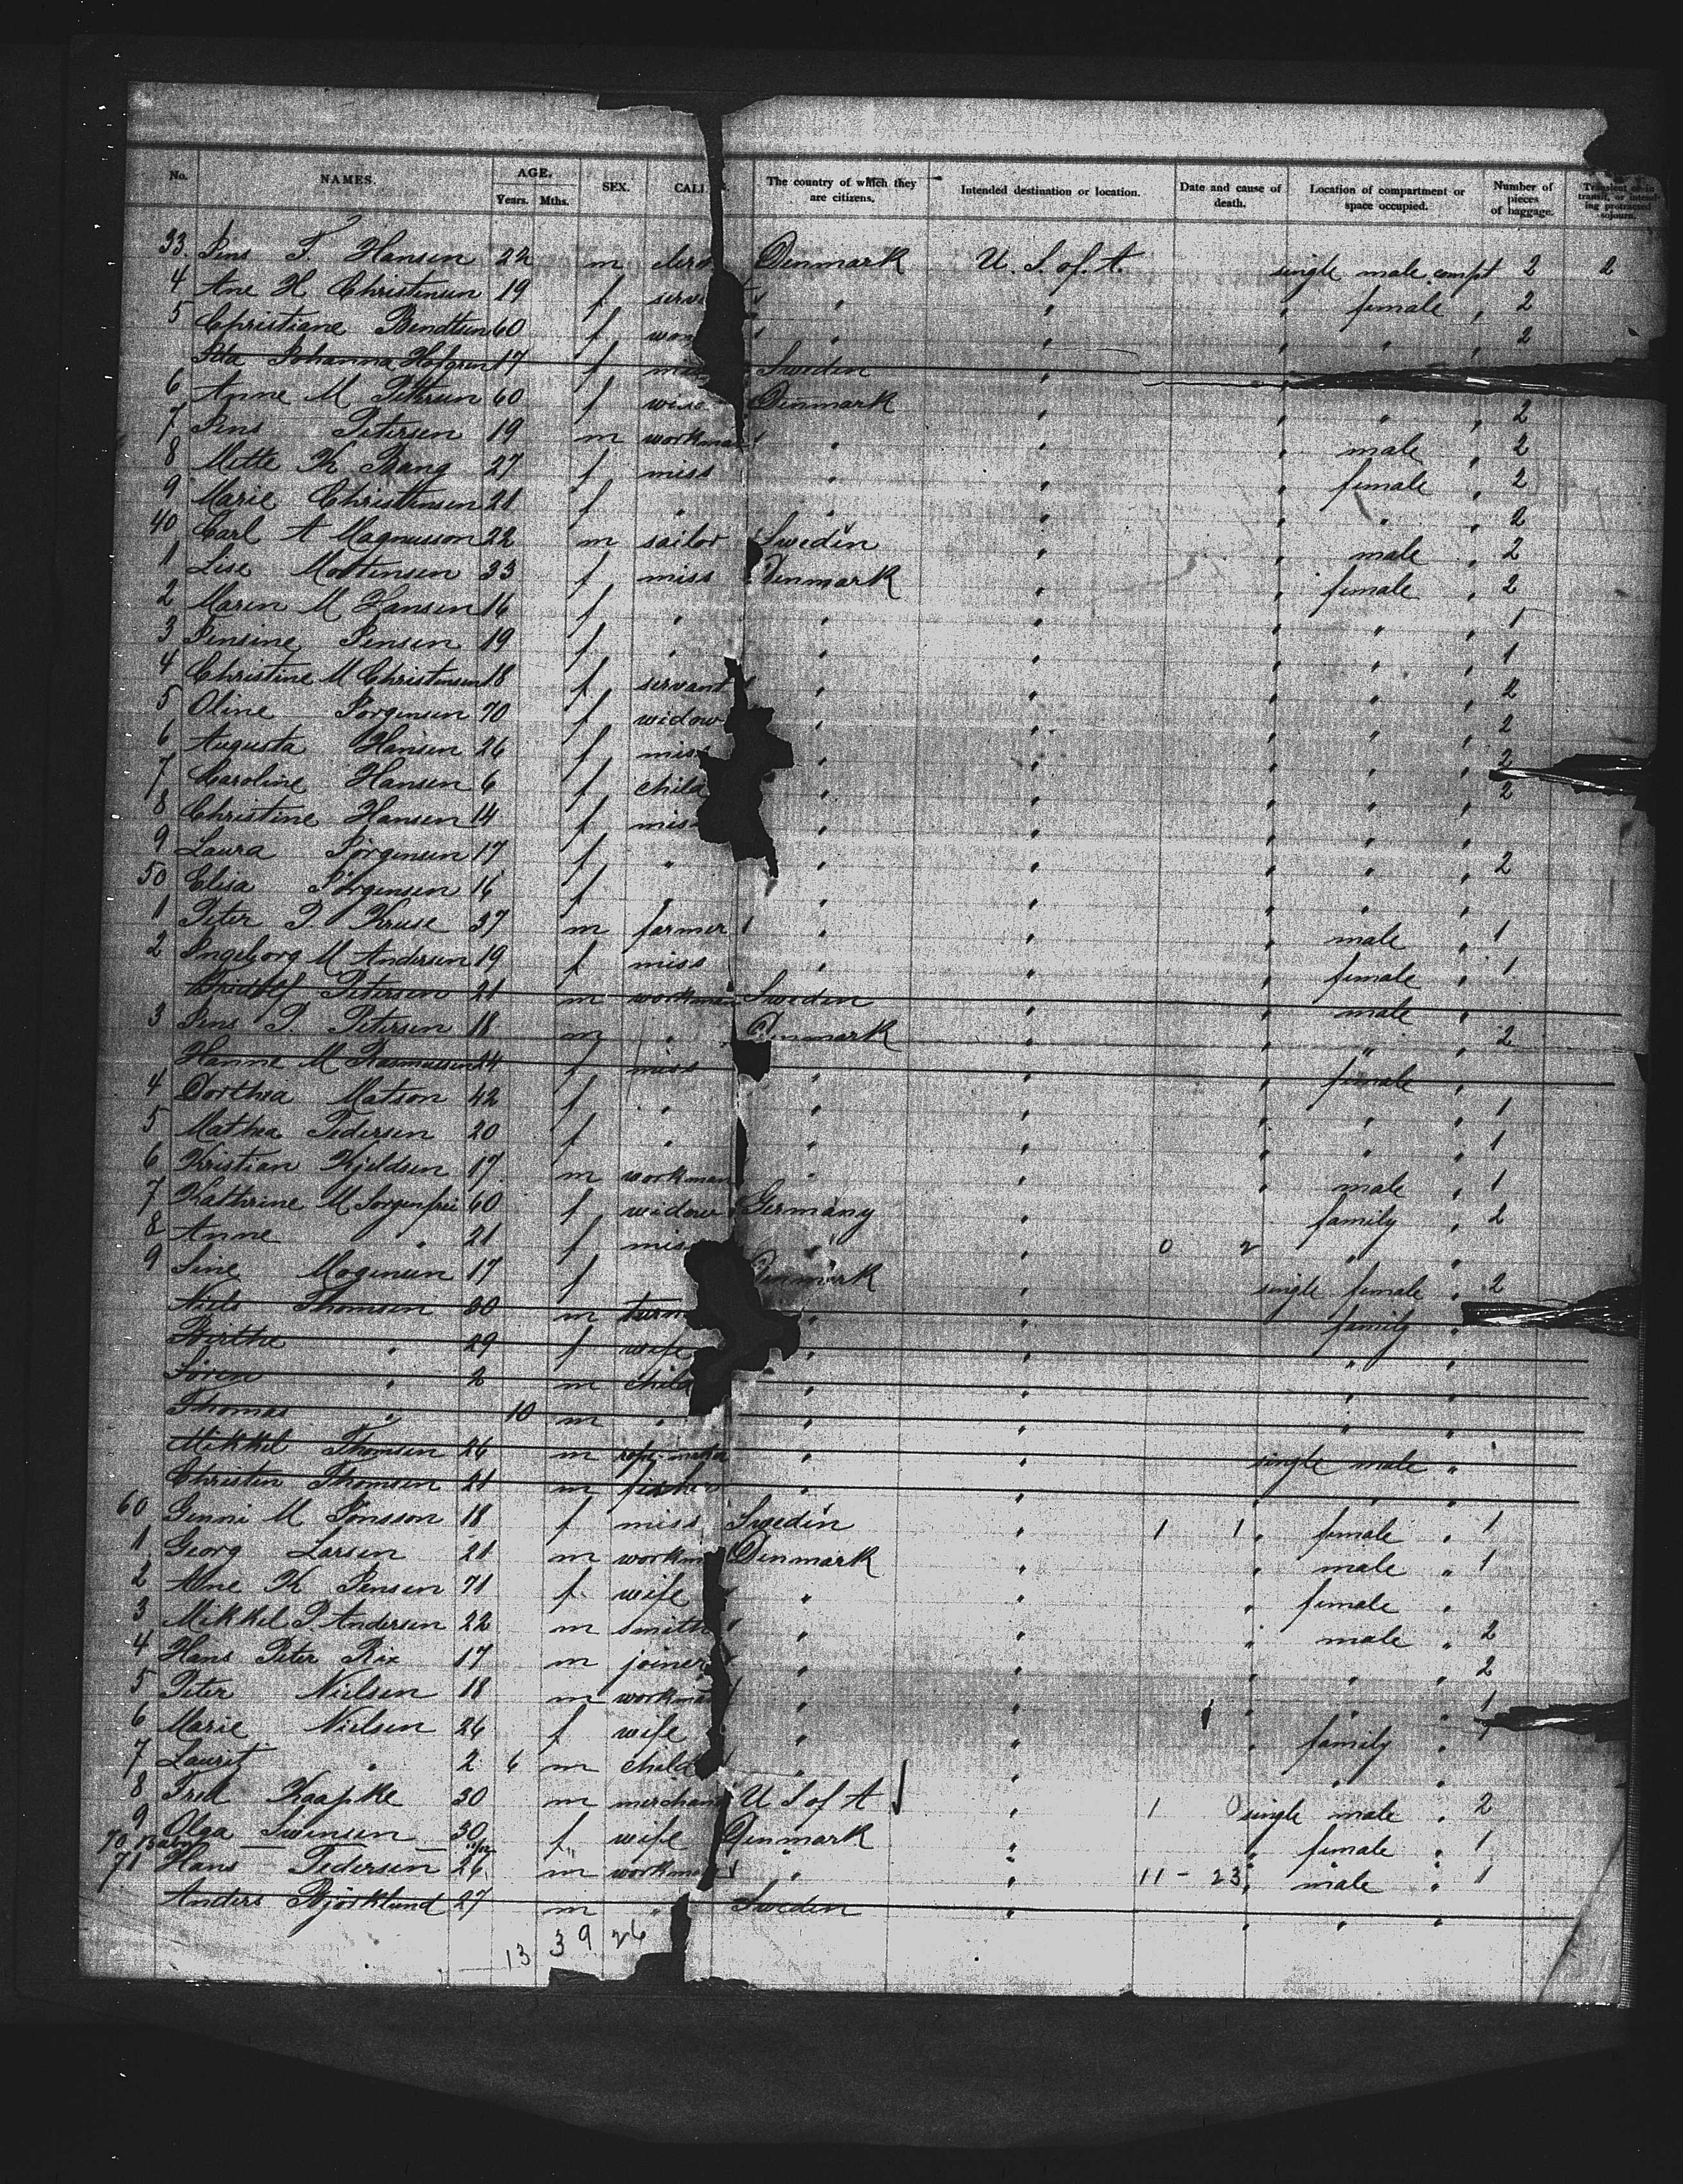 No. NAMES. AGE. Years. Mths. SEX. CALL The country of which they are citizens. Intended destination or location. Date and cause of death. Location of compartment or space occupied. Number of pieces of baggage. Transient or in transit, or intending protracted sojourn.
33. Jens F. Hansen 22 m clerk Denmark U. S. of. A. single male compt 2 2
4 Ane H Christensen 19 f serva " " " female " 2
5 Christiane Bendtsen 60 f wom " " " " " 2
Ida Johanna Hofgren 17 f miss Sweden " "
6 Anne M Petersen 60 f Denmark " " " " 2
7 Jens Petersen 19 m workman " " " male " 2
8 Mette K Bang 27 f miss " " " female " 2
9 Marie Christensen 21 f " " " " " " 2
40 Carl A Magnusson 22 m sailor Sweden " " male " 2
1 Lise Mortensen 33 f miss Denmark " " female " 2
2 Maren M Hansen 16 f " " " " " " 1
3 Jensine Jensen 19 f " " " " " " 1
4 Christine M Christensen 18 f servant " " " " " 2
5 Oline Jorgensen 70 f widow " " " " " 2
6 Augusta Hansen 26 f miss " " " " " 2
7 Caroline Hansen 6 f child " " " " " 2
8 Christine Hansen 14 f miss " " " " "
9 Laura Jörgensen 17 f " " " " " " 2
50 Elisa Jörgensen 16 f " " " " " "
1 Peter P. Kruse 37 m farmer " " " male " 1
2 Ingeborg M Andersen 19 f miss " " " female " 1
Petersen 21 m workman Sweden " " male "
3 Jens P. Petersen 18 m " Denmark " " " " 2
Hanne M Rasmussen 24 f miss " " " female "
4 Dorthea Matson 42 f " " " " " " 1
5 Mathea Pedersen 20 f " " " " " " 1
6 Kristian Kjeldsen 17 m workman " " " male " 1
7 Kathrine M Sorgenfrei 60 f widow Germany " family " 2
8 Anne " 21 f miss " " 0 2 " "
9 Sine Mogensen 17 f Denmark " single female " 2
Niels Thomsen 30 m turn " " family "
Birthe " 29 f wife " " " "
Sören " 2 m child " " " "
Thomas " 10 m " " " " "
Mikkel Thomsen 26 m rope-maker " " single male "
Christen Thomsen 21 m fisher " " " " "
60 Genni M Jonsson 18 f miss Sweden " 1 1 " female " 1
1 Georg Larsen 21 m workm Denmark " male " 1
2 Ane K Jensen 71 f wife " " " female "
3 Mikkel P. Andersen 22 m smith " " " male " 2
4 Hans Peter Rix 17 m joiner " " " " " 2
5 Peter Nielsen 18 m workman " " " " " 1
6 Marie Nielsen 26 f wife " " " family "
7 Lauritz " 2 6 m child " " " "
8 Fred Kaapke 30 m merchant U S of A " 1 0 single male " 2
9 Olga Swensen 30 f wife Denmark " " female " 1
70
71 Hans Pedersen 26 m workman " " 11 - 23 " male " 1
Anders Björklund 27 m " Sweden " " " "
13 3 9 26